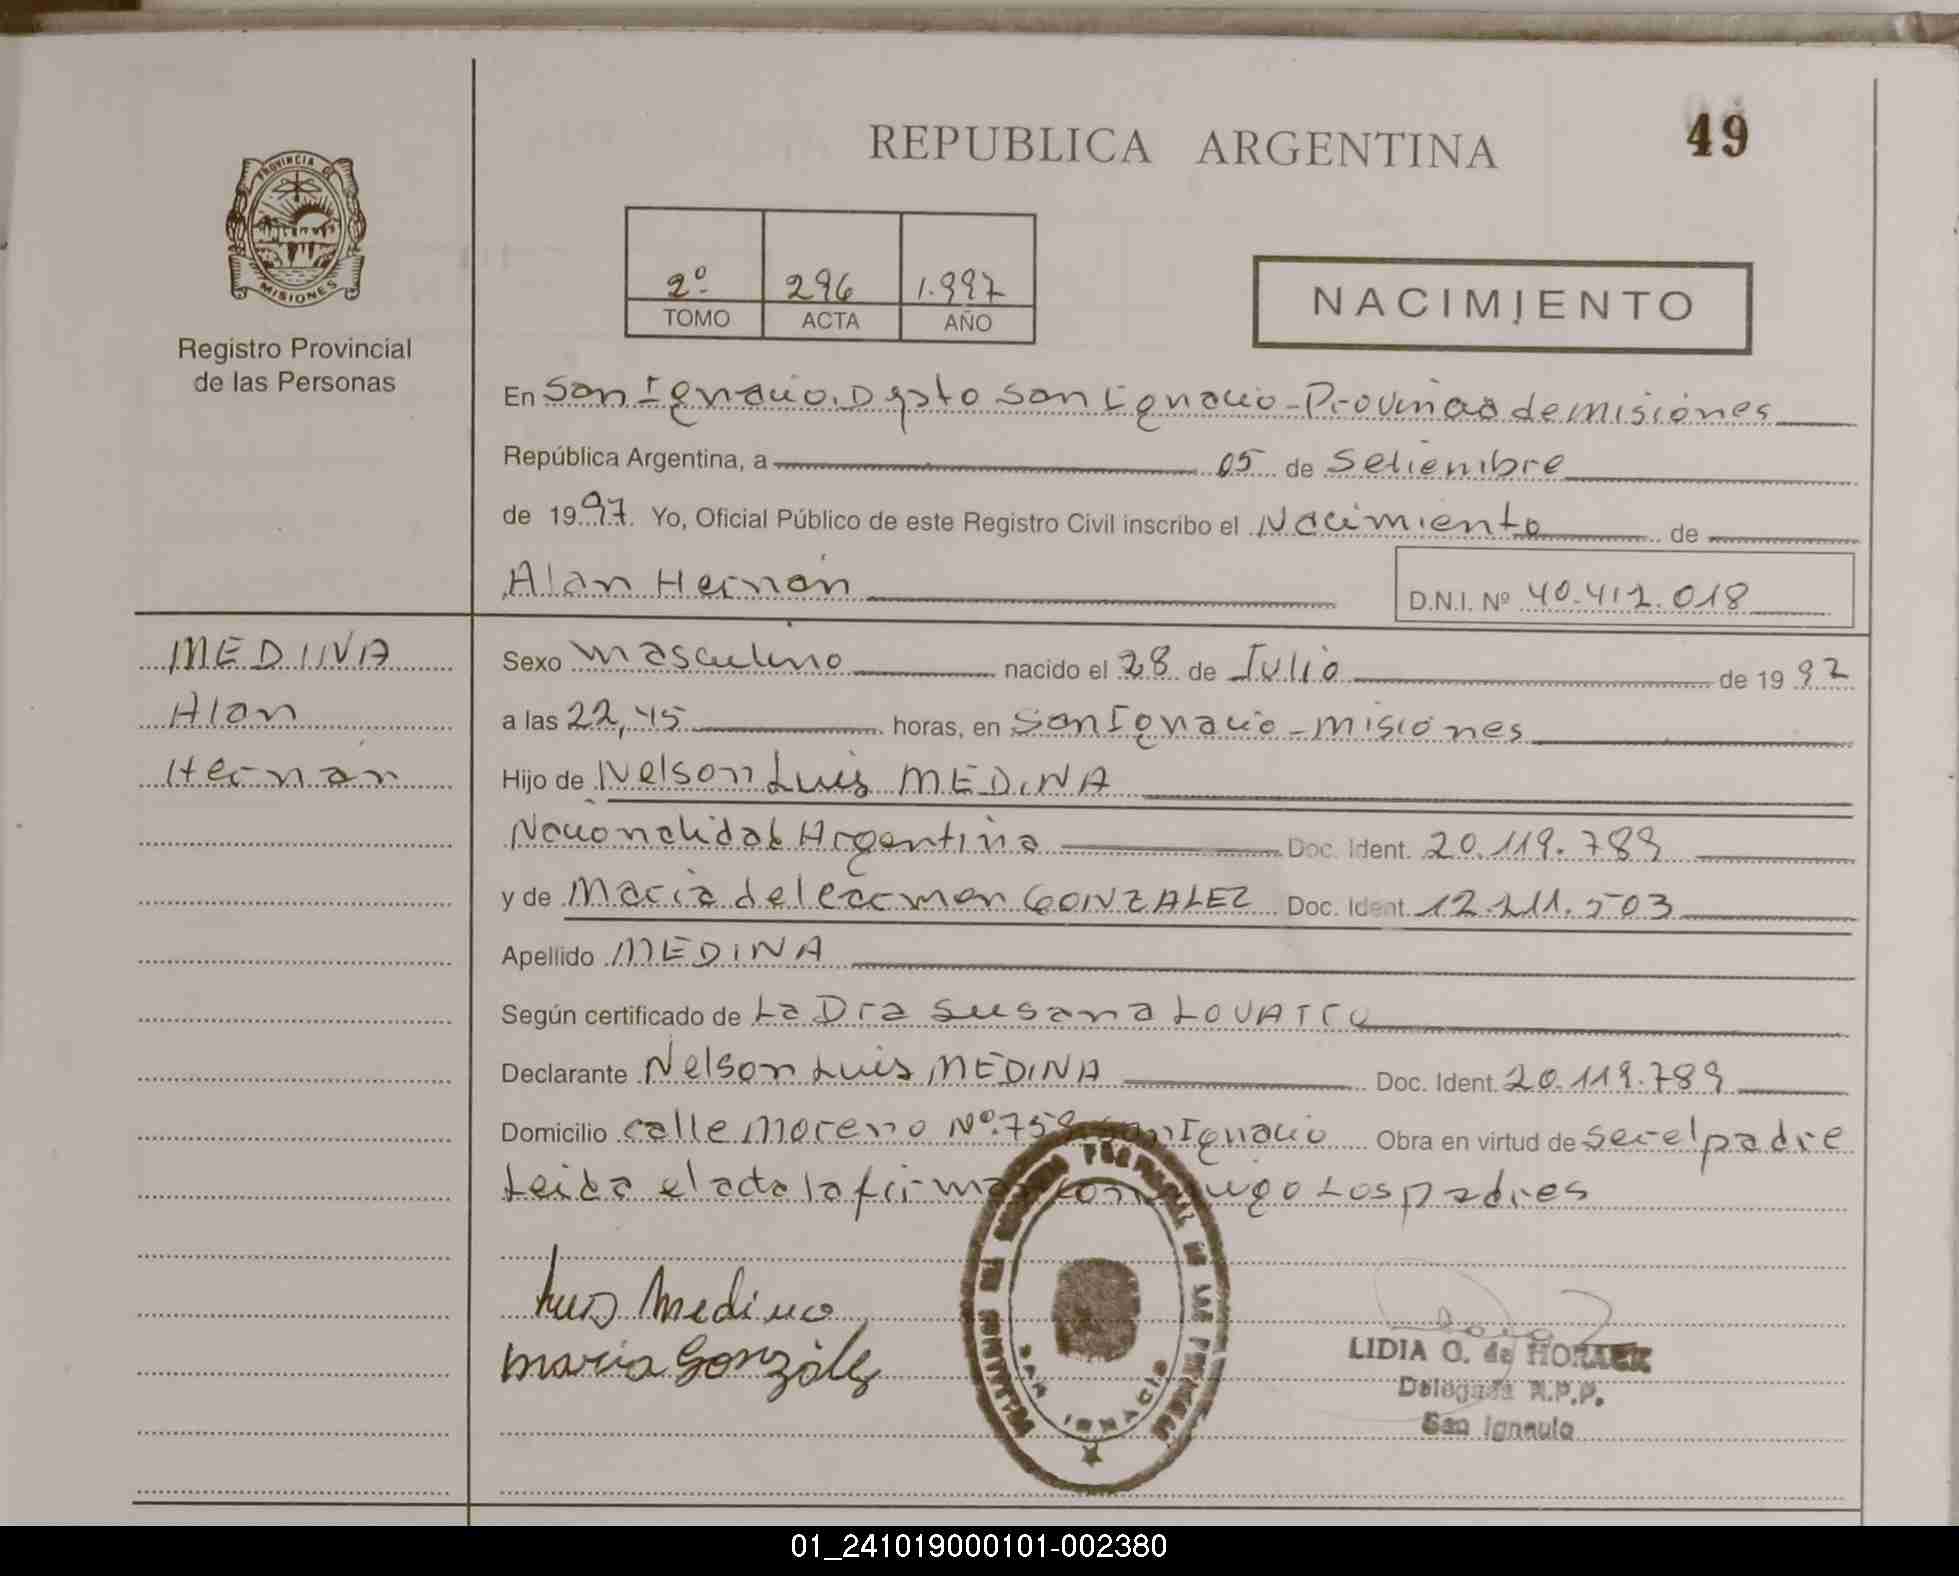 REPUBLICA ARGENTINA
49
PROVINCIA DE
MISIONES
Registro Provincial
de las Personas
2º 296 1.997
TOMO ACTA AÑO
NACIMIENTO
En San Ignacio. Dpto San Ignacio - Provincia de misiones
República Argentina, a 05 de Setiembre
de 1997. Yo, Oficial Público de este Registro Civil inscribo el Nacimiento de
Alan Hernán
D.N.I. Nº 40.412.018
MEDINA
Alan
Hernán
Sexo masculino nacido el 28 de Julio de 1997
a las 22,45 horas, en San Ignacio - misiones
Hijo de Nelson Luis MEDINA
Nacionalidad Argentina Doc. Ident. 20.119.789
y de Maria del carmen GONZALEZ Doc. Ident. 12.211.503
Apellido MEDINA
Según certificado de La Dra Susana LOVATTO
Declarante Nelson Luis MEDINA Doc. Ident. 20.119.789
Domicilio calle Moreno Nº 758 San Ignacio Obra en virtud de ser el padre
Leida el acta la firman conmigo Los padres
Luis Medina
maria Gonzáles
SAN IGNACIO
LIDIA O. de HORACK
Delegada R.P.P.
San Ignacio
01_241019000101-002380